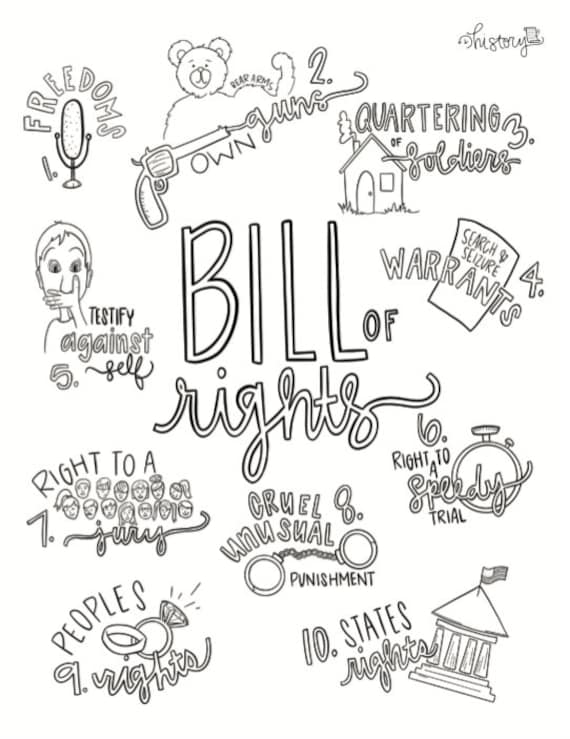 history
1. FREEDOMS
BEAR ARMS
2.
OWN guns
QUARTERING
OF
soldiers 3.
SEARCH &
SEIZURE
WARRANTS 4.
TESTIFY
against
5. self
BILL OF
rights
6.
RIGHT TO
A
speedy
TRIAL
RIGHT TO A
7. jury
CRUEL 8.
unusual
PUNISHMENT
PEOPLES
9. rights
10. STATES
rights